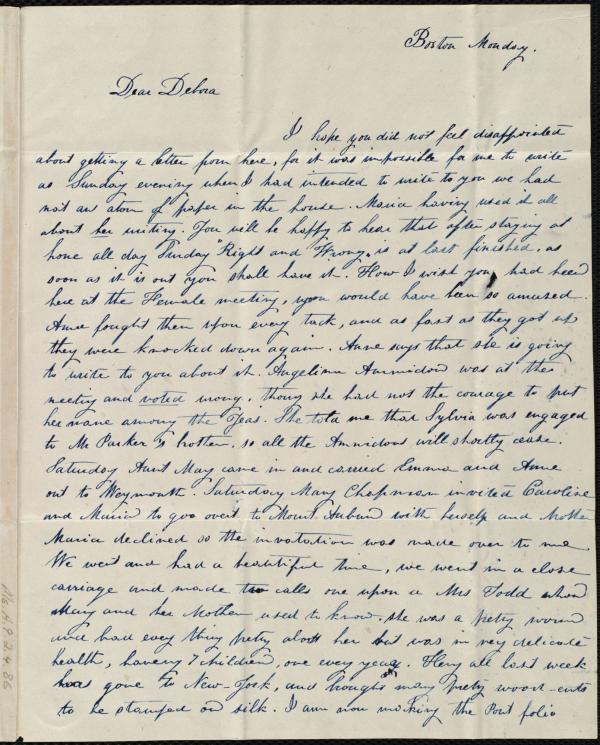 Boston Monday.
Dear Debora
I hope you did not feel disappointed
about getting a letter from here, for it was impossible for me to write
as Sunday evening when I had intended to write to you we had
not an atom of paper in the house. Maria having used it all
about her writing. You will be happy to hear that after staying at
home all day Sunday "Right and Wrong" is at last finished, as
soon as it is out you shall have it. How I wish you had been
here at the Female meeting, you would have been so amused.
Anne fought them upon every tack, and as fast as they got up
they were knocked down again. Anne says that she is going
to write to you about it. Angelina Ammidon was at the
meeting and voted wrong, though she had not the courage to put
her name among the Yeas. She told me that Sylvia was engaged
to Mr Parker's brother, so all the Amidons will shortly cease.
Saturday Aunt May came in and carried Emma and Anne
out to Weymouth. Saturday Mary Chapman invited Caroline
and Maria to goo overt to Mount Auburn with herself and Mother
Maria declined so the invatation was made over to me.
We went and had a beautiful time, we went in a close
carriage and made two calls one upon a Mrs Todd whom
Mary and her Mother used to know. she was a pretty woman
and had every thing pretty about her but was in very delicate
health, having 7 children, one every year. Henry all last week
has gone to New-York, and bought many pretty wood-cuts
to be stamped on silk. I am now making the Port folio
Ms.A.9.2.4.86